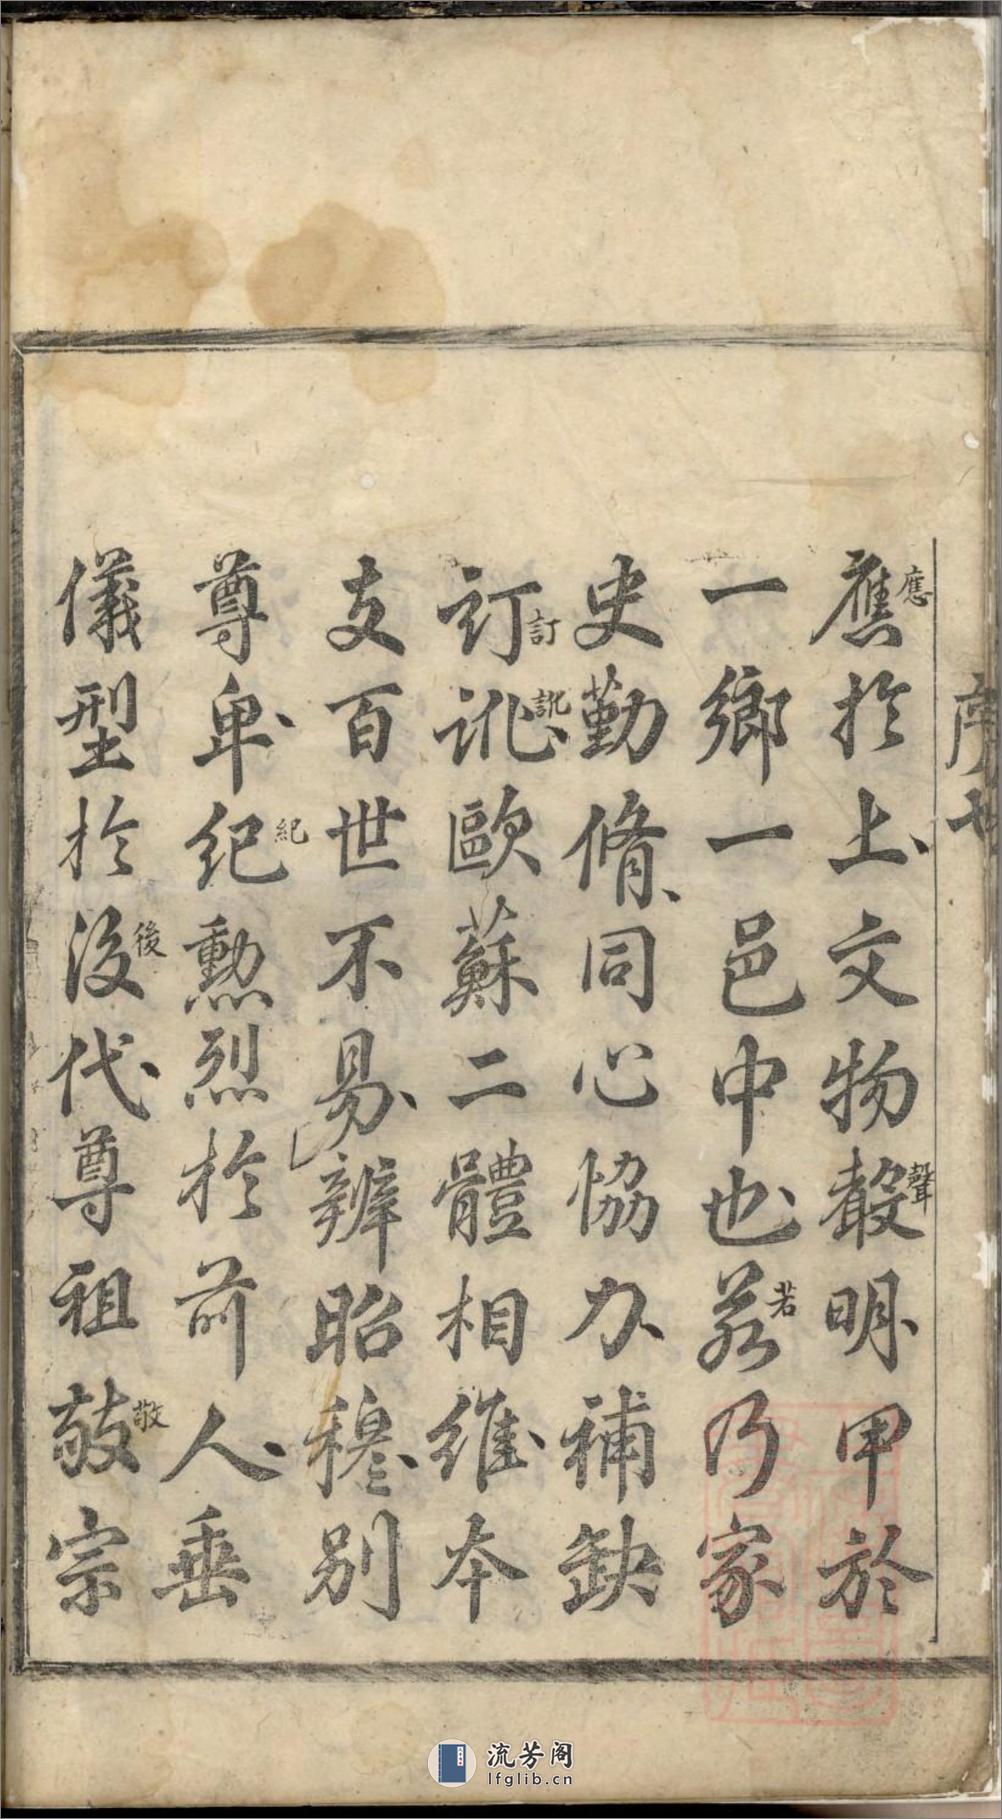 序七
應於上文物聲明甲於
一鄉一邑中也若乃家
史勤脩同心協力補缺
訂訛歐蘇二體相維本
支百世不易辨昭穆別
尊卑紀勲烈於前人垂
儀型於後代尊祖敬宗
應
聲
若
訂
訛
紀
後
敬
流芳阁
lfglib.cn